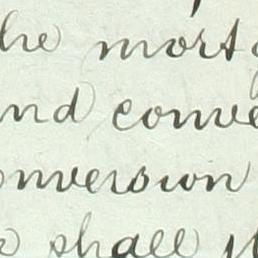 the mort
and conve
onversion
shall